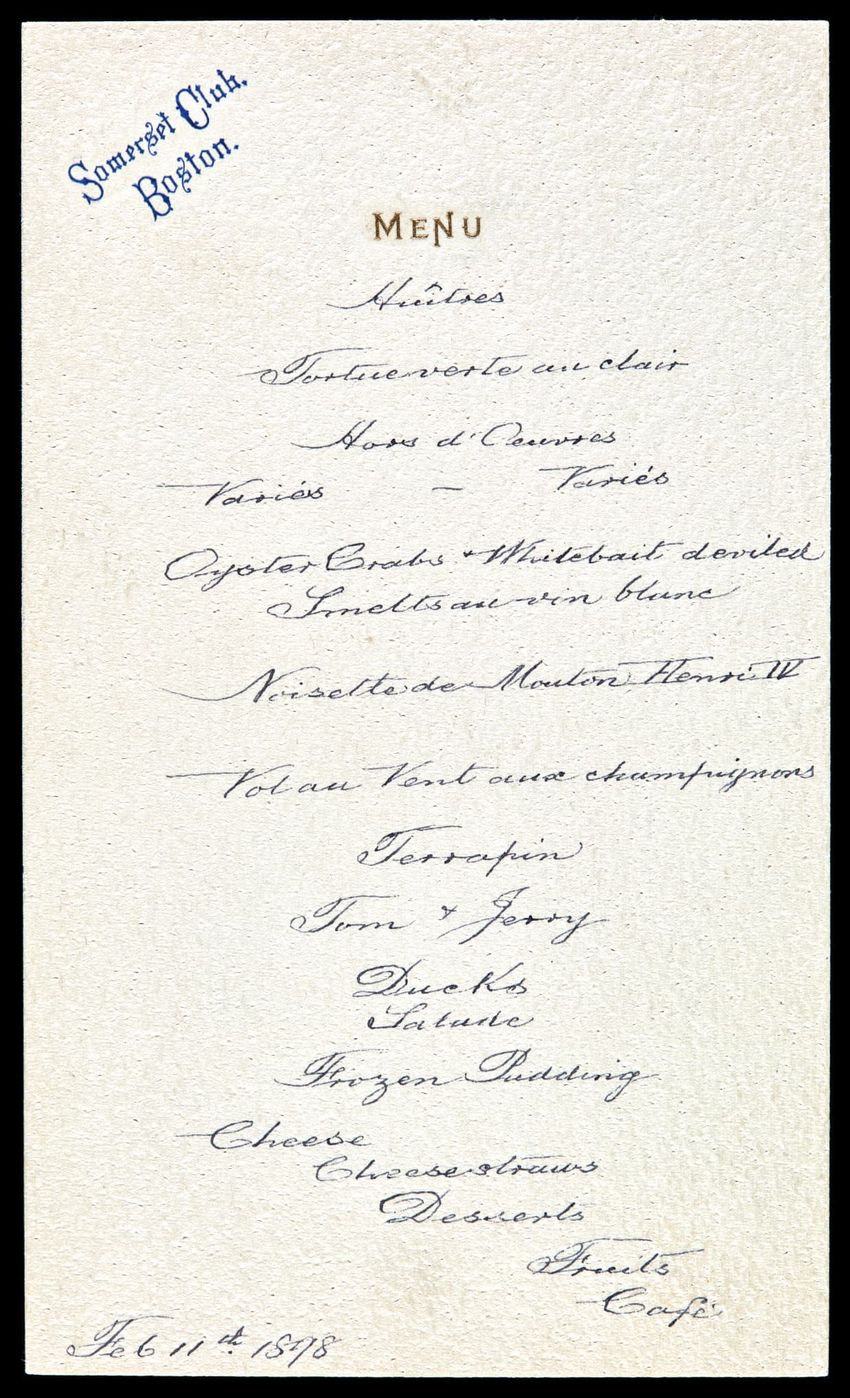 Somerset Club.
Boston.
MENU
Huîtres
Tortue verte au clair
Hors d'Oeuvres
Variés — Variés
Oyster Crabs + Whitebait deviled
Smelts au vin blanc
Noisette de Mouton Henri IV
Vol au Vent aux champignons
Terrapin
Tom + Jerry
Ducks
Salade
Frozen Pudding
Cheese
Cheese straws
Desserts
Fruits
Café
Feb 11th 1898